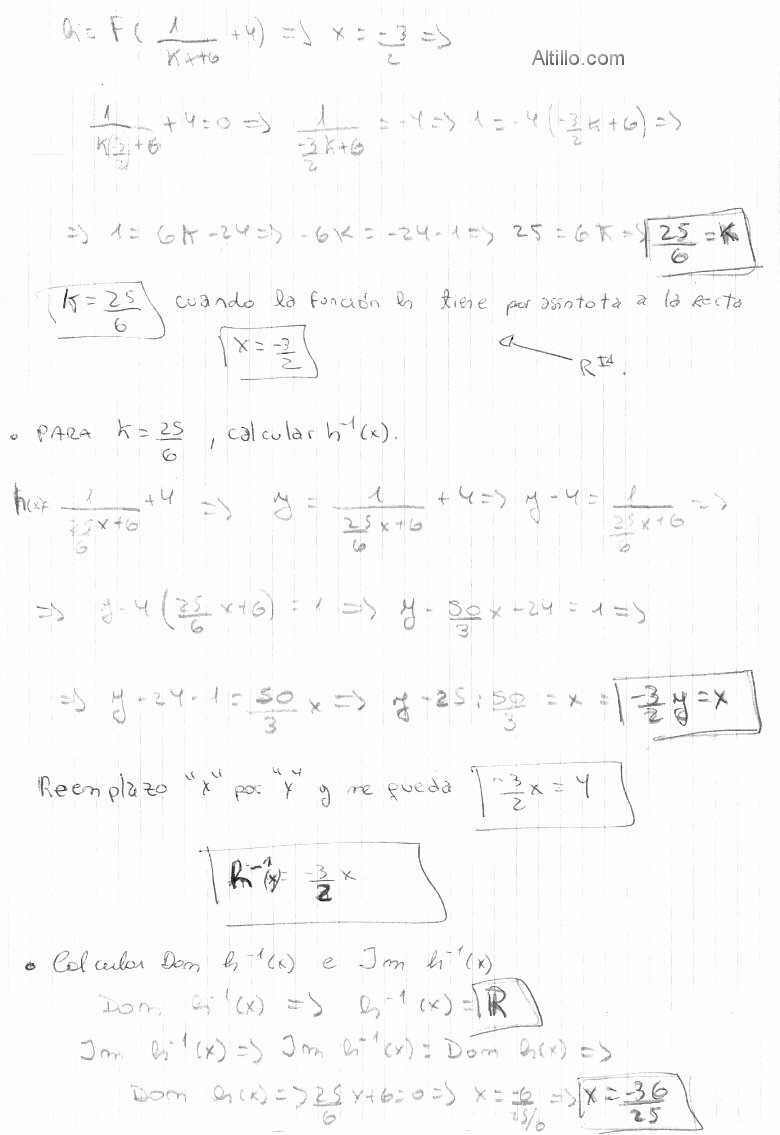 h = F( 1/(Kx+6) + 4) => x = -3/2 =>
Altillo.com
1/(K(-3/2)+6) + 4 = 0 => 1/(-3/2 K+6) = -4 => 1 = -4(-3/2 K+6) =>
=> 1 = 6K-24 => -6K = -24-1 => 25 = 6K => 25/6 = K
K = 25/6 cuando la función h tiene por asíntota a la recta
x = -3/2
R ta.
• PARA K = 25/6, calcular h⁻¹(x).
h(x)= 1/(25/6 x+6) + 4 => y = 1/(25/6 x+6) + 4 => y-4 = 1/(25/6 x+6) =>
=> y-4(25/6 x+6) = 1 => y - 50/3 x - 24 = 1 =>
=> y-24-1 = 50/3 x => y-25 : 50/3 = x = -3/2 y = x
Reemplazo "x" por "y" y me queda -3/2 x = y
h⁻¹(x) = -3/2 x
• Calcular Dom h⁻¹(x) e Im h⁻¹(x)
Dom h⁻¹(x) => h⁻¹(x) = R
Im h⁻¹(x) => Im h⁻¹(x) = Dom h(x) =>
Dom h(x) => 25/6 x+6=0 => x = -6/(25/6) => x = -36/25